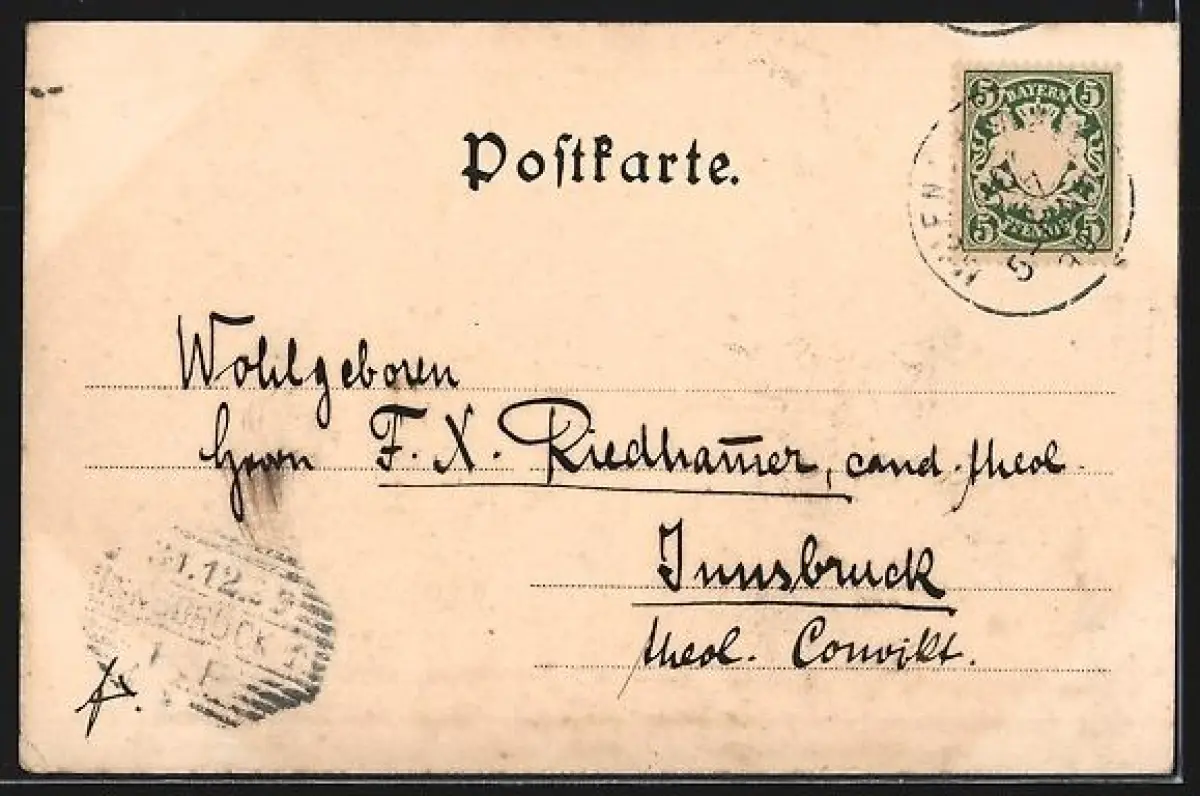 Postkarte.
5 BAYERN 5
5 PFENNIG 5
Wohlgeboren
Herrn F. X. Riedham̄er, cand. theol.
Innsbruck
theol. Convikt.
31.12.
INNSBRUCK
fr.